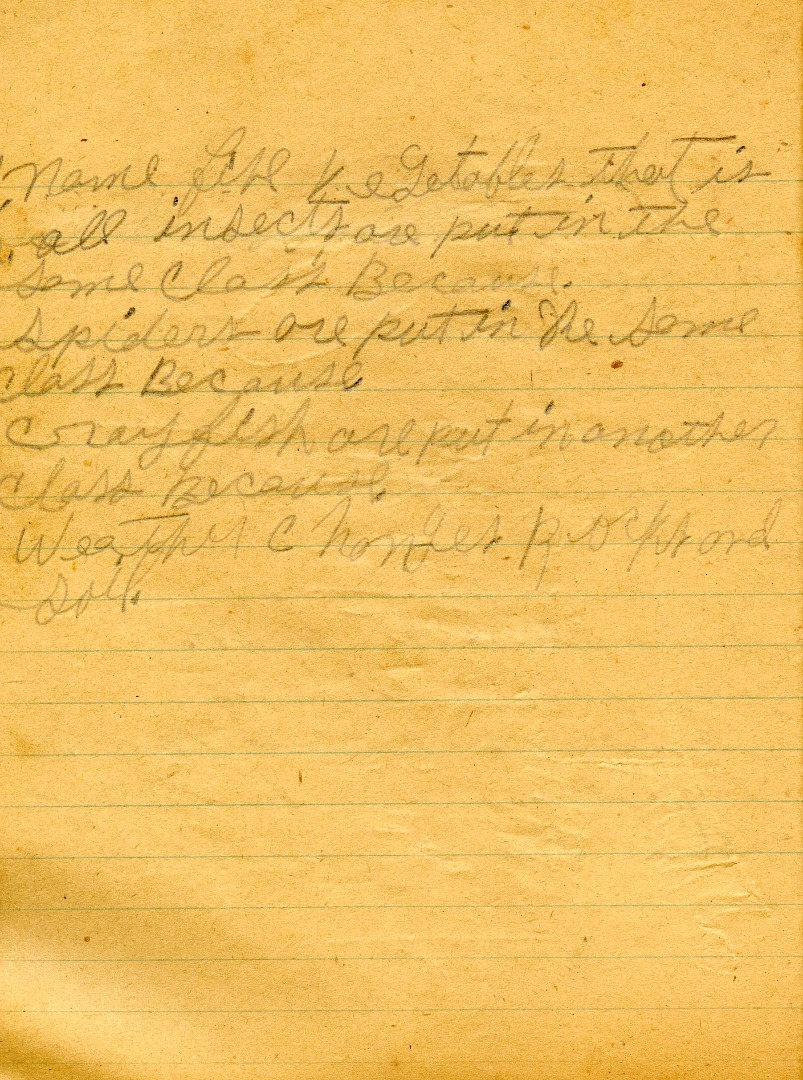 Name five vegetables that is
all insects are put in the
same Class Because.
spiders are put in the same
Class Because
Crayfish are put in another
Class Because
Weather Changes Rocks and
soil.